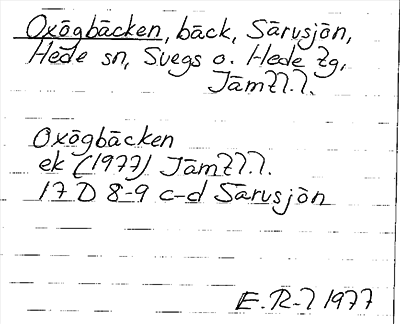 Oxögbäcken, bäck, Särusjön,
Hede sn, Svegs o. Hede tg,
Jämtl.l.
Oxögbäcken
ek (1977) Jämtl.l.
17 D 8-9 c-d Särusjön
E.R-l 1977